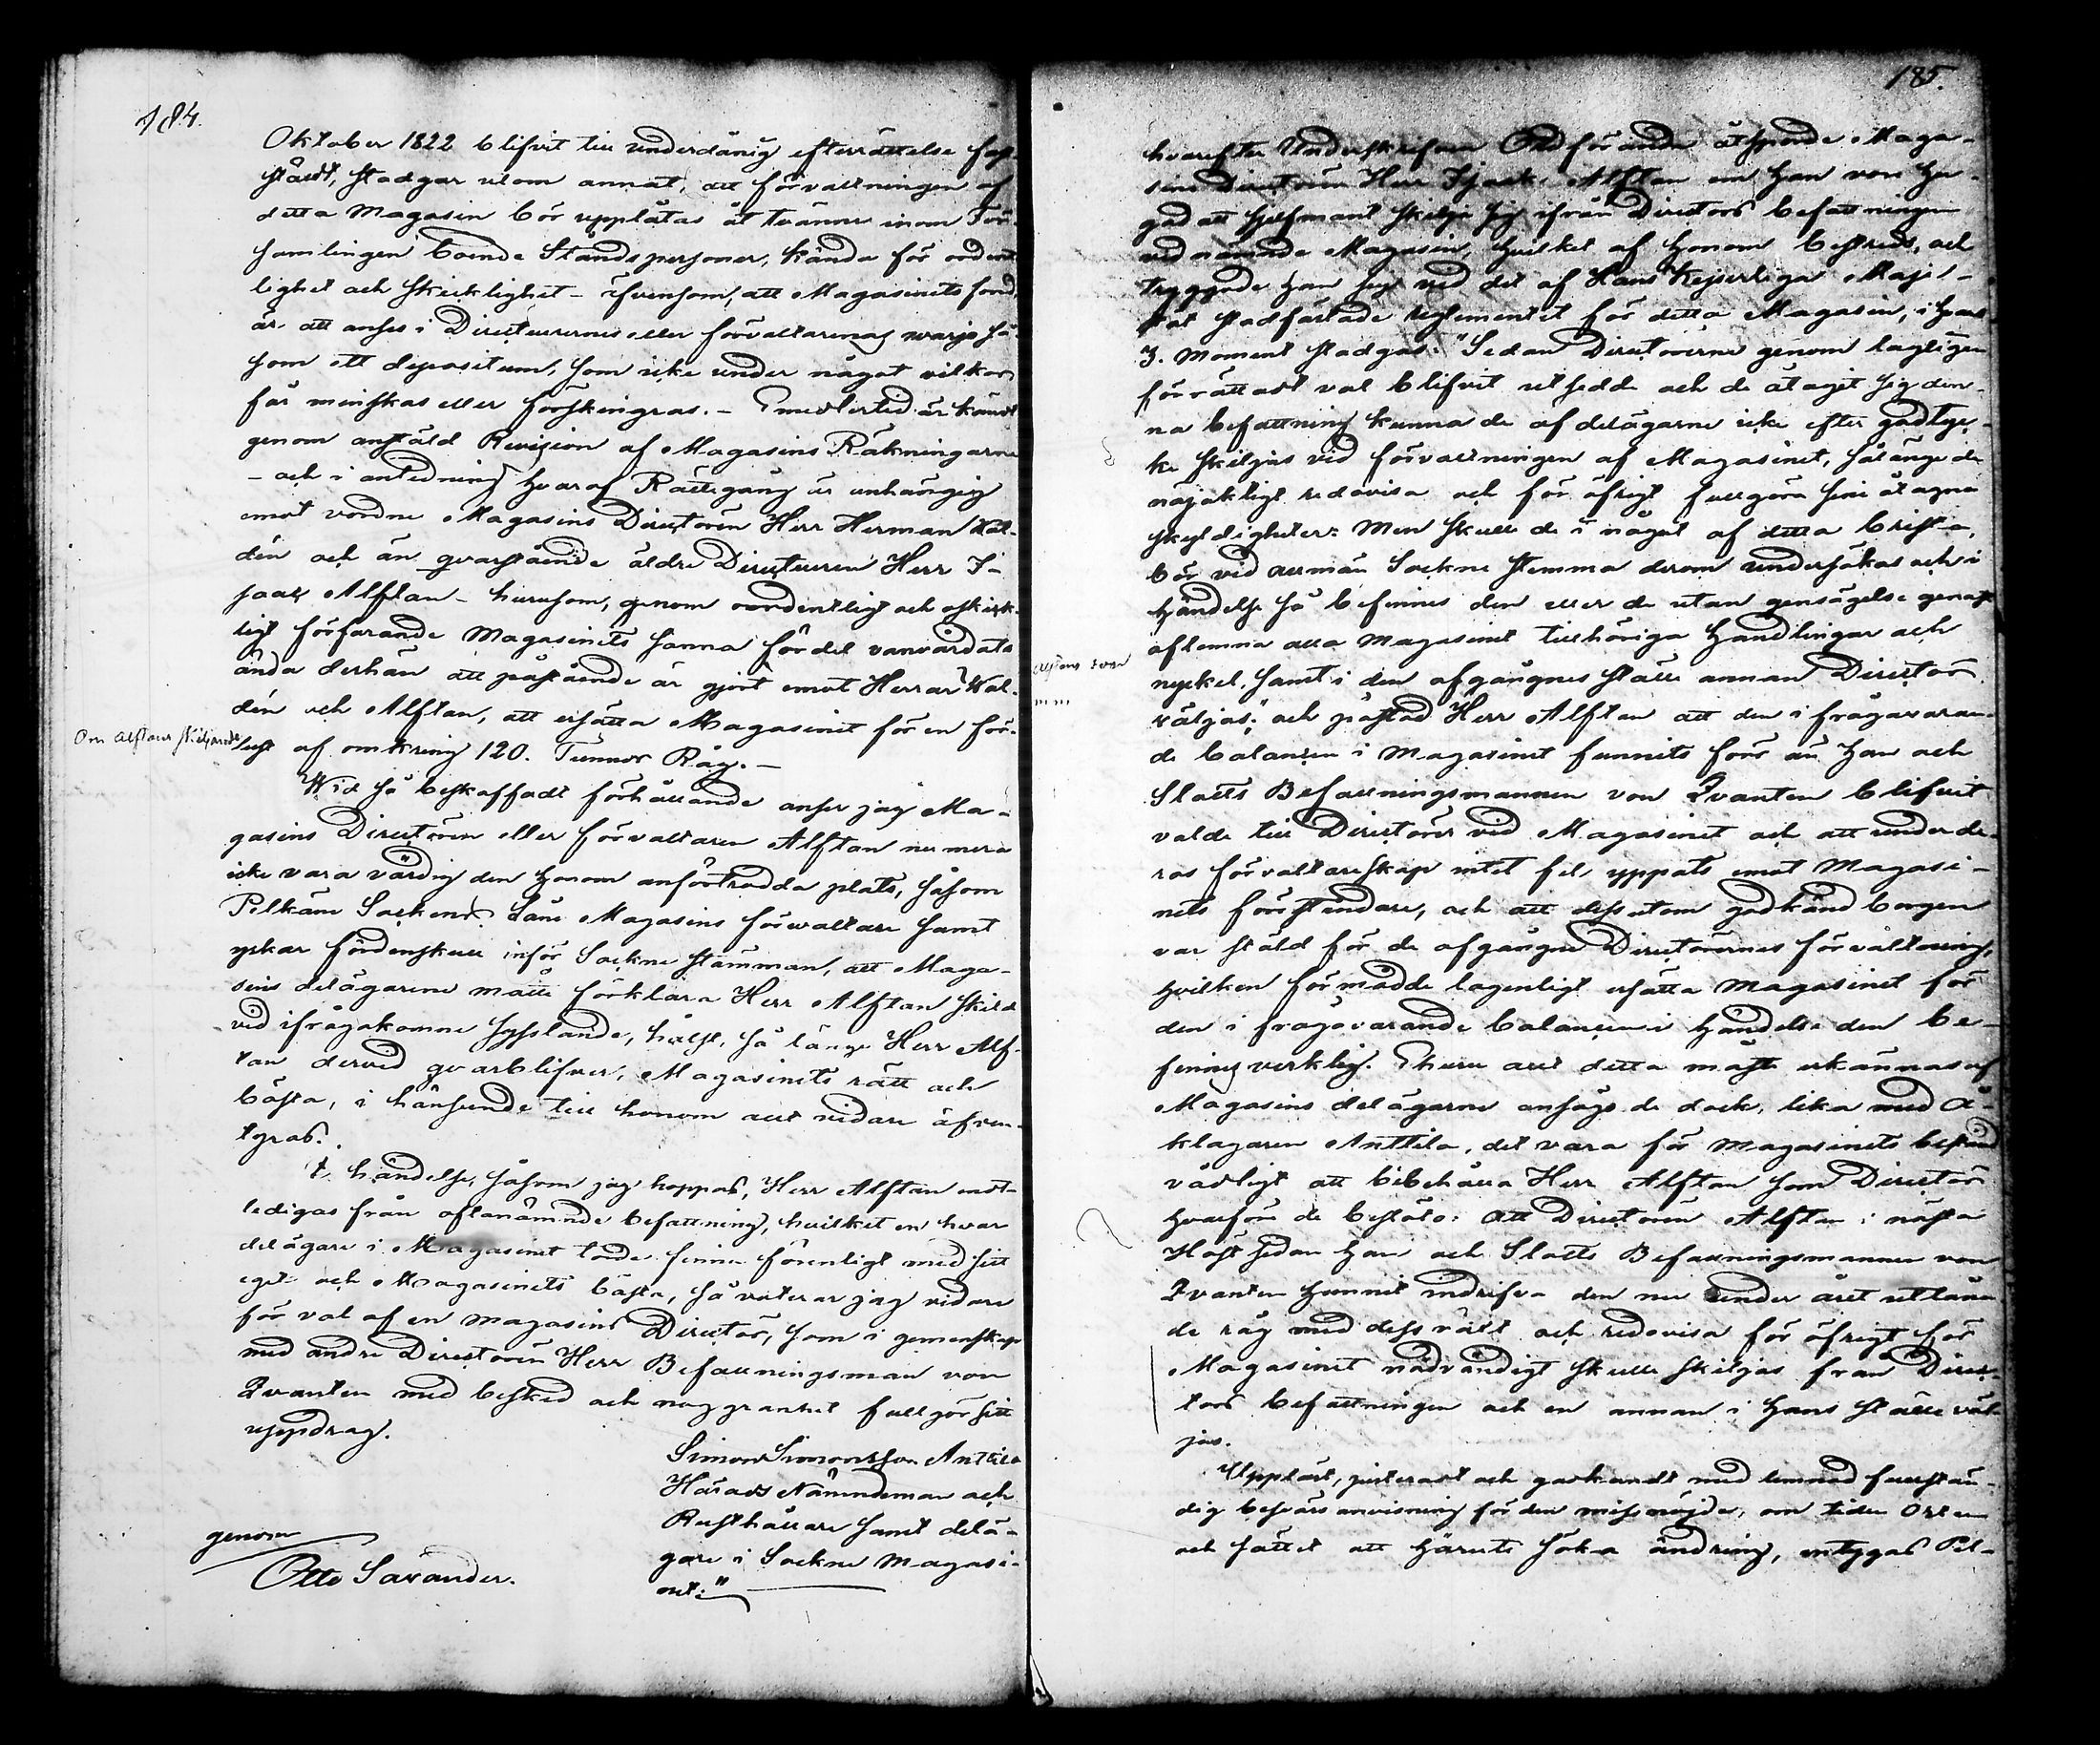 184.
Oktober 1822 blifvit till underdånig efterrättelse fast-
stäldt, stadgar utom annat, att förvaltningen af
detta Magasin bör upplåtas åt tvänne inom För-
samlingen boende Ståndspersoner, kända för ordent-
lighet och skicklighet – äfvensom, att Magasinets fond
är att anses i Directeurernes eller förvaltarenas wärjo så-
som ett depositum, som icke under något vilkor
får minskas eller förskingras. – Emedlertid är kändt
genom anstäld Revision af Magasins Räkningarne
– och i anledning hvaraf Rättegång är anhängig
emot vordne Magasins Directören Herr Herman Wal-
dén och än qvarstående äldre Directeuren Herr I-
saac Alftan – hurusom, genom oordentligt och oskick-
ligt förfarande Magasinets sanna fördel vanvårdats
ända derhän att påstående är gjort emot Herrar Wal-
dén och Alftan, att ersätta Magasinet för en för-
Om Alftans skiljande
lust af omkring 120. Tunnor Råg. –
Wid så beskaffadt förhållande anser jag Ma-
gasins Directören eller förvaltaren Alftan numera
icke vara värdig den honom anförtrodda plats, såsom
Pelkäne Sockens Låne Magasins förwaltare samt
yrkar fördenskull inför Sockne stämman, att Maga-
sins delägarene måtte förklara Herr Alftan skild
vid ifrågakomne sysslande, hälst, så länge Herr Alf-
tan dervid qvarblifver, Magasinets rätt och
bästa, i hänseende till honom allt vidare äfven-
tyras.
I händelse, såsom jag hoppas, Herr Alftan ent-
ledigas från oftanämnde befattning, hvilket en hvar
delägare i Magasinet torde finna förenligt med sitt
eget och Magasinets bästa, så voterar jag vidare
för val af en Magasins Directör, som i gemenskap
med andre Directören Herr Befallningsman von
Qvanten med besked och noggranhet fullgör sitt
uppdrag.
Simon Simonsson Anttila
Härads Nämndeman och
Rusthållare samt delä-
gare i Sockne Magasi-
net."
genom
Otto Savander.
185.
hvarefter Undertskrifven Ordförande åtsporde Maga-
sins Directören Herr Isaak Alftan om han vore ho-
gad att sjelfmant skilja sig ifrån Directors befattningen
vid nämnde Magasin, hvilket af honom bestreds, och
tryggade han sig vid det af Hans Kejserliga Maje-
stät stadfästade reglementet för detta Magasin, i hvars
3. Moment stadgas: "Sedan Directörerne genom lagligen
förrättadt val blifvit utsedde och de åtagit sig den-
na befattning kunna de af delägarne icke efter godtyc-
ke skiljas vid förvaltningen af Magasinet, så länge de
nöjaktigt redovisa och för öfrigt fullgöra sine åtagne
skyldigheter: Men skulle de i något af detta brista,
bör vid allmän Sockne stemma derom undersökas och i
händelse så befinnes den eller de utan gensägelse genast
aflemna alla Magasinet tillhöriga handlingar och
Alftans svar
nyckel, samt i den afgångnes ställe annan Directör
väljas;" och påstod Herr Alftan att den i frågavaran-
de balancen i Magasinet funnits förr än han och
Slotts Befallningsmannen von Qvanten blifvit
valde till Directörer vid Magasinet och att under de-
ras förvaltareskap intet fel yppats emot Magasi-
nets föreståndare, och att dessutom godkänd borgen
var stäld för de afgångne Directörernes förvaltning,
hvilken förmådde lagenligt ersätta Magasinet för
den i frågavarande balancen i händelse den be-
finnes verklig. Ehuru allt detta måste erkännas af
Magasins delägarne ansågo de dock, lika med Å-
klagaren Anttila, det vara för Magasinets bestånd
vådligt att bibehålla Herr Alftan som Directör
hvarföre de beslöto: att Directören Alftan i nästa
Höst sedan han och Slotts Befallningsmannen von
Qvanten hunnit indrifva den nu under året utlåna-
de råg med dess växt och redovisa för öfrigt för
Magasinet nödvändigt skulle skiljas från Direc-
tors befattningen och en annan i hans ställe väl-
jas.
Uppläst, justeradt och godkändt med lemnad fullstän-
dig besvärs anvisning för den missnöjde, om tiden Orten
och sättet att häruti söka ändring, intygas Pel-